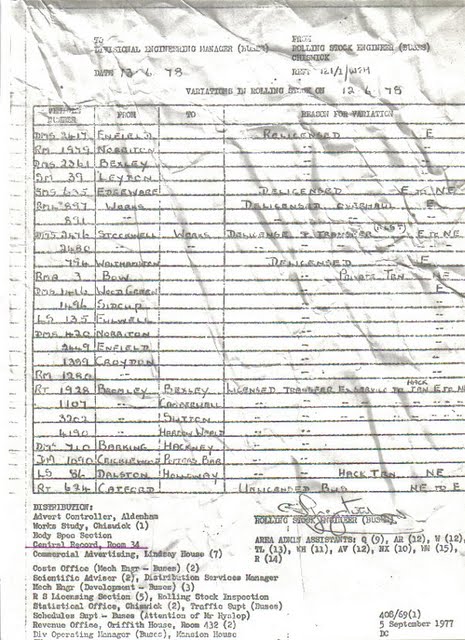 TO FROM
DIVISIONAL ENGINEERING MANAGER (BUSES) ROLLING STOCK ENGINEER (BUSES)
CHISWICK
DATE 13 6 78 REF:
VARIATIONS IN ROLLING STOCK ON 12 6 78
NUMBER FROM TO REASON FOR VARIATION
DMS 2417 ENFIELD RELICENSED E
RM 1979 NORBITON -- --
DMS 2361 BEXLEY -- --
39 LEYTON -- --
EDGEWARE DELICENSED E TO NE
RML 897 WORKS DELICENSED OVERHAUL E
891 -- -- --
STOCKWELL WORKS DELICENSE & TRANSFER E TO NE
2480 -- -- -- --
794 WALTHAMSTOW DELICENSED E
RMA 3 BOW -- PRIVATE TRN NE
DMS 1416 WOOD GREEN -- E
1496 SIDCUP -- --
LS 135 FULWELL -- --
DMS 420 NORBITON -- --
2449 ENFIELD -- --
1399 CROYDON -- --
RM 1280 -- -- --
RT 1928 BROMLEY BEXLEY LICENSED TRANSFER EX SERVICE TO TRN E TO NE
1107 -- CAMBERWELL -- -- --
-- SUTTON -- -- --
4190 -- -- -- --
DMS 710 BARKING HACKNEY -- -- --
CRICKLEWOOD POTTERS BAR -- -- --
LS 86 DALSTON HOLLOWAY -- HACK TRN NE
RT 624 CATFORD UNLICENSED BUS NE TO E
DISTRIBUTION:
Advert Controller, Aldenham
Works Study, Chiswick (1) ROLLING STOCK ENGINEER (BUSES)
Body Spec Section
Central Record, Room 34 AREA ADMIN ASSISTANTS: Q (9), AR (12), W (12),
Commercial Advertising, Lindsey House (7) TL (13), WH (11), AV (12), NX (10), (15),
R (14)
Costs Office (Mech Engr - Buses) (2)
Scientific Adviser (2), Distribution Services Manager
Mech Engr (Development - Buses) (3)
R S Licensing Section (5), Rolling Stock Inspection
Statistical Office, Chiswick (2), Traffic Supt (Buses)
Schedules Supt - Buses (Attention of Mr Hyslop) 408/69(1)
Revenue Office, Griffith House, Room 432 (2) 5 September 1977
Div Operating Manager (Buses), Mansion House DC